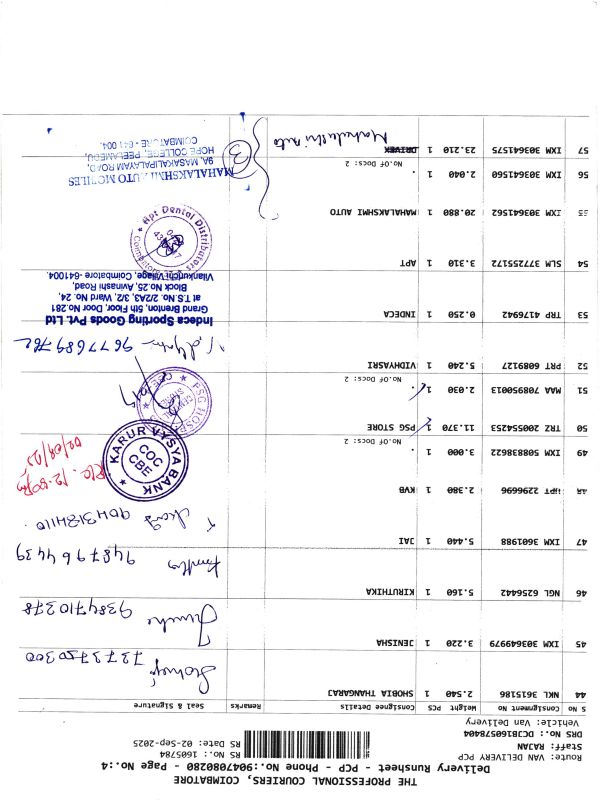 THE PROFESSIONAL COURIERS, COIMBATORE
Delivery Runsheet - PCP - Phone No.:9047080280 - Page No.:4
Route: VAN DELIVERY PCP
Staff: RAJAN
DRS No.: DCJB160578404
Vehicle: Van Delivery
RS No.: 1605784
RS Date: 02-Sep-2025
S No Consignment No Weight PCS Consignee Details Remarks Seal & Signature
44 NKL 3615186 2.540 1 SHOBIA THANGARAJ
7373750300
45 IXM 303649979 3.220 1 JENISHA
9384710378
46 NGL 6256442 5.160 1 KIRUTHIKA
9487964439
47 IXM 3601988 5.440 1 JAI
9043184110.
48 HPT 2296696 2.380 1 KVB
KARUR VYSYA BANK
COC
CBE
02/09/25
49 IXM 508838622 3.000 1 .
No.Of Docs: 2
50 TRZ 200554253 11.370 1 PSG STORE
51 MAA 708950013 2.030 1 .
No.Of Docs: 2
52 PRT 6089127 5.240 1 VIDHYASRI
9677689762
53 TRP 4176942 0.250 1 INDECA
Indeca Sporting Goods Pvt. Ltd
Grand Brenton, 5th Floor, Door No.281
at T.S. No. 2/2A3, 3/2, Ward No. 24,
Block No.25, Avinashi Road,
Vilankurichi Village, Coimbatore-641004.
54 SLM 377255172 3.310 1 APT
Apt Dental Distributors
55 IXM 303641562 20.880 1 MAHALAKSHMI AUTO
56 IXM 303641560 2.040 1 .
No.Of Docs: 2
57 IXM 303641575 23.210 1
3
MAHALAKSHMI AUTO MOBILES
9A, MASAKALIPALAYAM ROAD,
HOPE COLLEGE, PEELAMEDU,
COIMBATORE - 641 004.